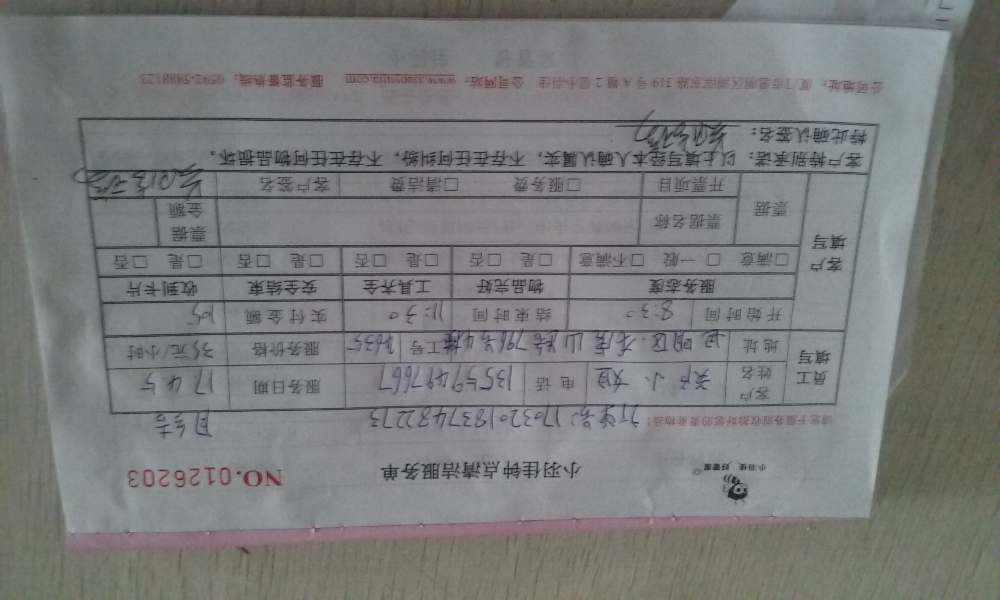 小羽佳 好管家
小羽佳钟点清洁服务单
NO.0126203
请您于服务前收拾好您的贵重物品!
订单号: 1703201837482273
员工填写
客户姓名 小姐 电话 13559497667 服务日期 17 4 5
地址 思明区 山路796号 工号 2635 服务价格 35元/小时
开始时间 8:30 结束时间 11:30 实付金额 105
客户填写
服务态度 物品完好 工具齐全 安全结束 收到卡片
□满意 □一般 □不满意 □是 □否 □是 □否 □是 □否 □是 □否
票据 票据名称 票据金额
开票项目 □服务费 □清洁费 客户签名
客户特别承诺:以上填写经本人确认属实,不存在任何纠纷,不存在任何物品损坏。
特此确认签名:
公司地址:厦门市思明区湖滨东路319号A幢2层小羽佳 公司网站:www.xiaoyujia.com 服务监督热线:0592-5888123